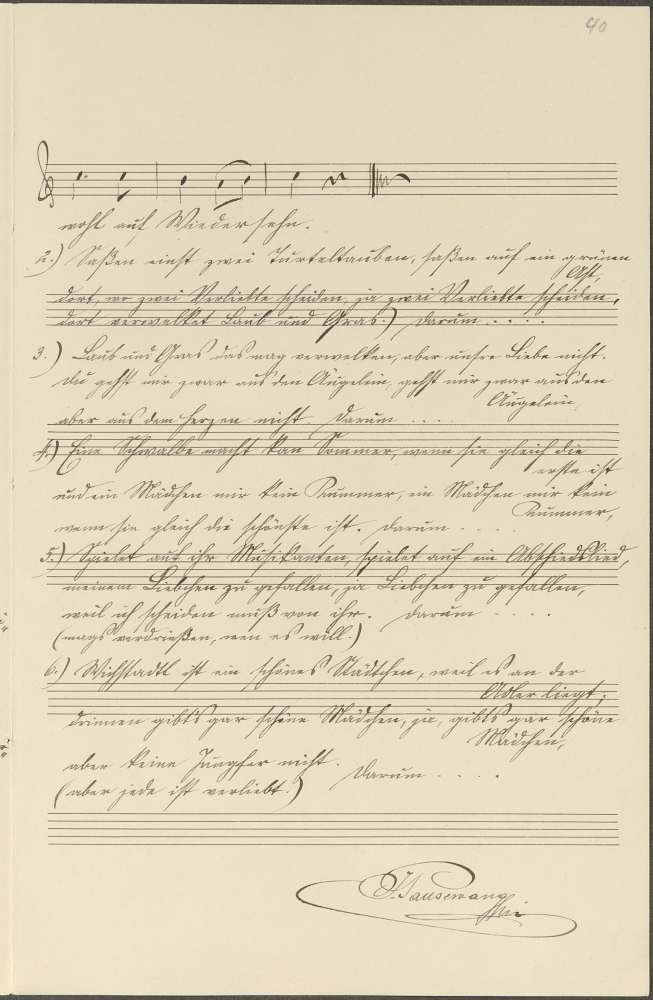 40
wohl auf Wiedersehn.
2.) Saßen einst zwei Turteltauben, saßen auf ein grünen
Ast,
dort, wo zwei Verliebte scheiden, ja zwei Verliebte scheiden,
dort verwelket Laub und Gras.) Darum . . . .
3.) Laub und Gras das mag verwelken, aber unsre Liebe nicht.
du gehst mir zwar aus den Äugelein, gehst mir zwar aus den
Äugelein,
aber aus dem Herzen nicht. Darum . . . .
4.) Eine Schwalbe macht kan Sommer, wenn sie gleich die
erste ist
und ein Mädchen mir kein Kummer, ein Mädchen mir kein
Kummer,
wenn sie gleich die schönste ist. Darum . . . .
5.) Spielet auf ihr Musikanten, spielet auf ein Abschiedslied,
meinem Liebchen zu gefallen, ja Liebchen zu gefallen,
weil ich scheiden muß von ihr. Darum . . . .
(mags verdrießen, wen es will.)
6.) Wichstadtl ist ein schönes Städtchen, weil es an der
Adler liegt;
drinnen gibts gar schöne Mädchen, ja, gibts gar schöne
Mädchen,
aber keine Jungfer nicht. Darum . . . .
(aber jede ist verliebt.)
J. Pausewang